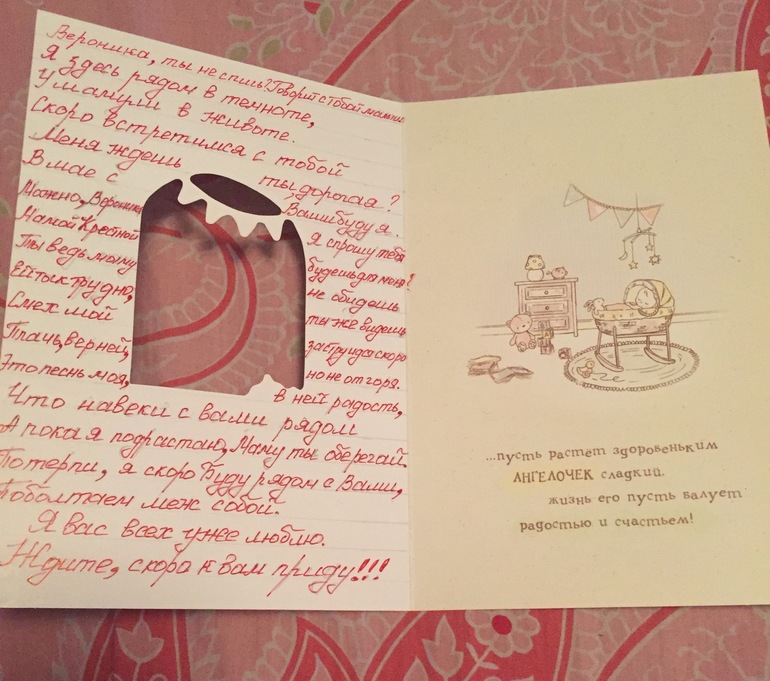 Вероника, ты не спишь? Говорит с тобой малыш
Я здесь рядом в темноте,
У мамули в животе.
Скоро встретимся с тобой
Меня ждешь ты дорогая?
В мае с Вами буду я.
Можно, Вероника Я спрошу тебя
Мамой Крестной будешь для меня?
Ты ведь маму не обидешь
Ей так трудно, ты же видешь
Смех мой заструится скоро
Плач, верней, но не от горя.
Это песнь моя, в ней радость,
Что навеки с вами рядом
А пока я подрастаю, Маму ты оберегай.
Потерпи, я скоро буду рядом с Вами,
Поболтаем меж собой.
Я вас всех уже люблю.
Ждите, скора к Вам приду!!!
...пусть растёт здоровеньким
АНГЕЛОЧЕК сладкий,
жизнь его пусть балует
радостью и счастьем!